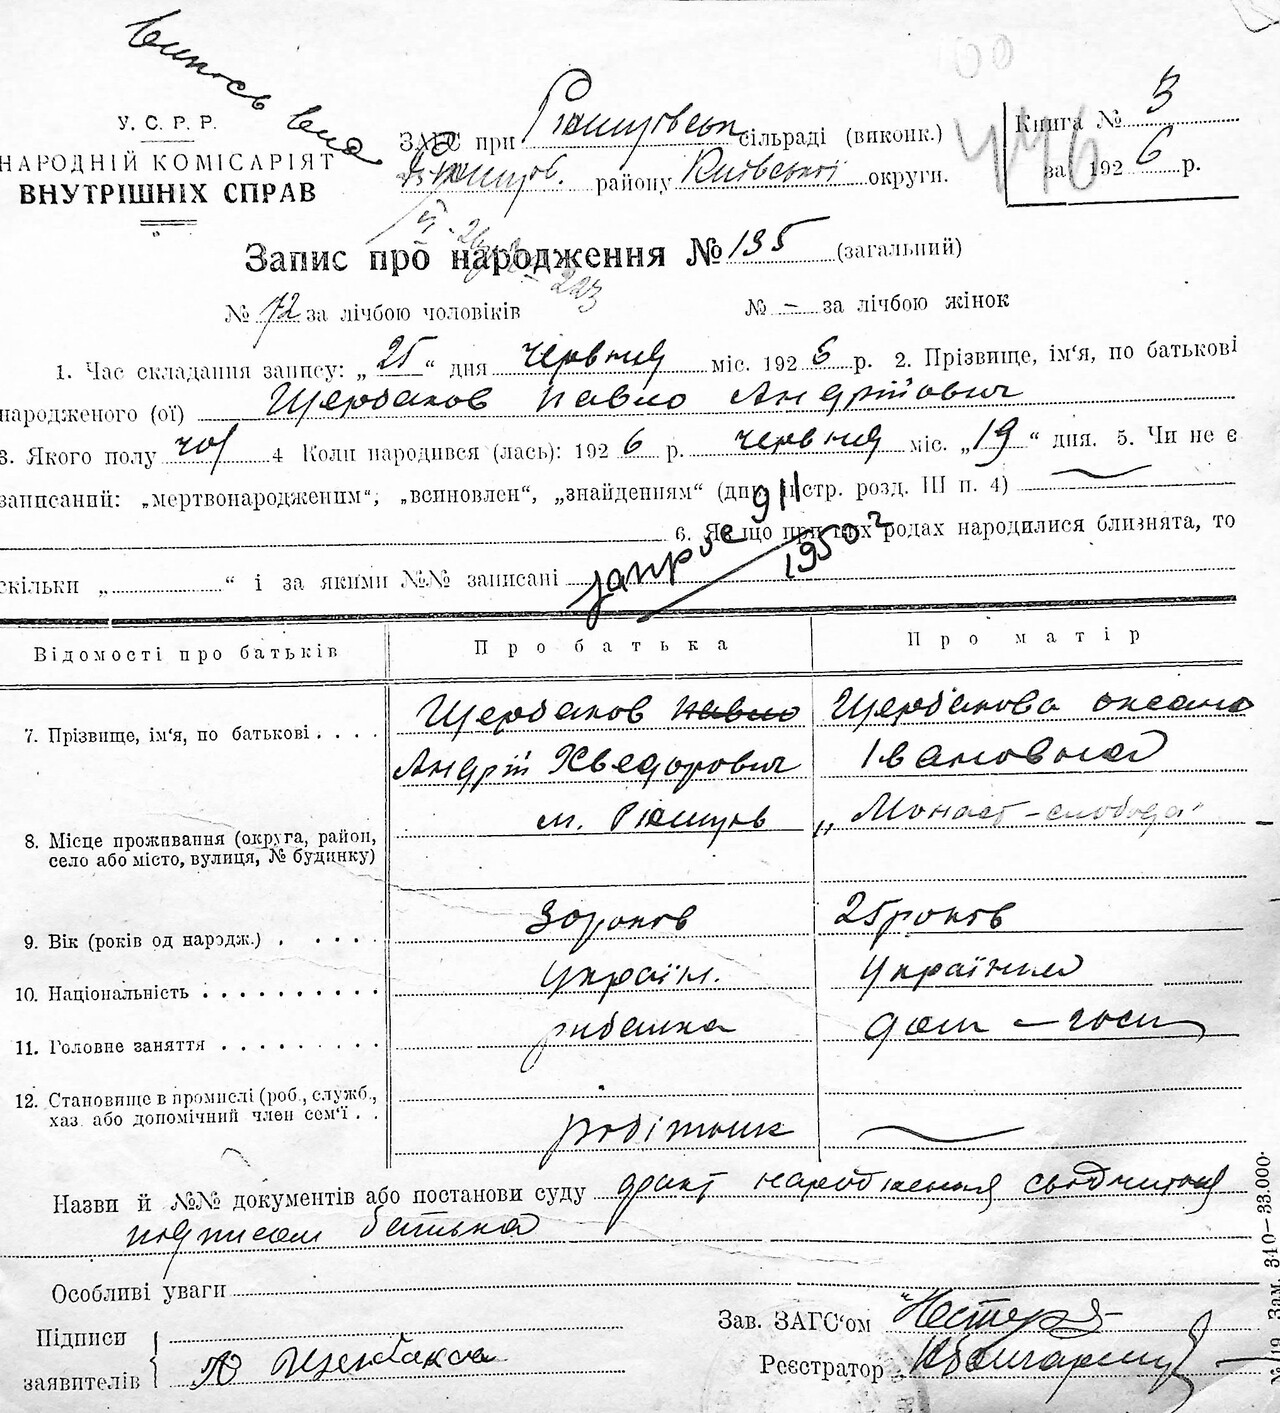 Випись вид
У. С. Р. Р.
НАРОДНІЙ КОМІСАРІЯТ
ВНУТРІШНІХ СПРАВ
ЗАГС при Ржищівськ сільраді (виконк.)
Ржищів. району Київської округи.
Книга № 3
за 1926 р.
446
Запис про народження № 135 (загальний)
№ 72 за лічбою чоловіків № – за лічбою жінок
1. Час складання запису: „25“ дня червня міс. 1926 р. 2. Прізвище, ім‘я, по батькові
народженого (ої) Щербаков Павло Андрійович
3. Якого полу чол 4 Коли народився (лась): 1926 р. червня міс. „19“ дня. 5. Чи не є
записаний: „мертвонародженим“, „всиновлен“, „знайденням“ (див. інстр. розд. III п. 4)
911
6. Якщо при цих родах народилися близнята, то
1950
скільки „ “ і за якими №№ записані
Відомості про батьків Про батька Про матір
7. Прізвище, ім‘я, по батькові Щербаков Павло Щербакова Оксана
Андрій Хведорович Івановна
8. Місце проживання (округа, район, село або місто, вулиця, № будинку) м. Ржищів „Монаст–слобода“
9. Вік (років од народж.) 30 роков 25 роков
10. Національність україн. українка
11. Головне заняття рибалка дом – госп
12. Становище в промислі (роб., служб., хаз. або допомічний член сем‘ї робітник
Назви й №№ документів або постанови суду факт народження свідчиться
подписом батька
Особливі уваги
Підписи
заявителів А Щербаков
Зав. ЗАГС‘ом
Реєстратор
№ 19 Зам. 340—33.000.